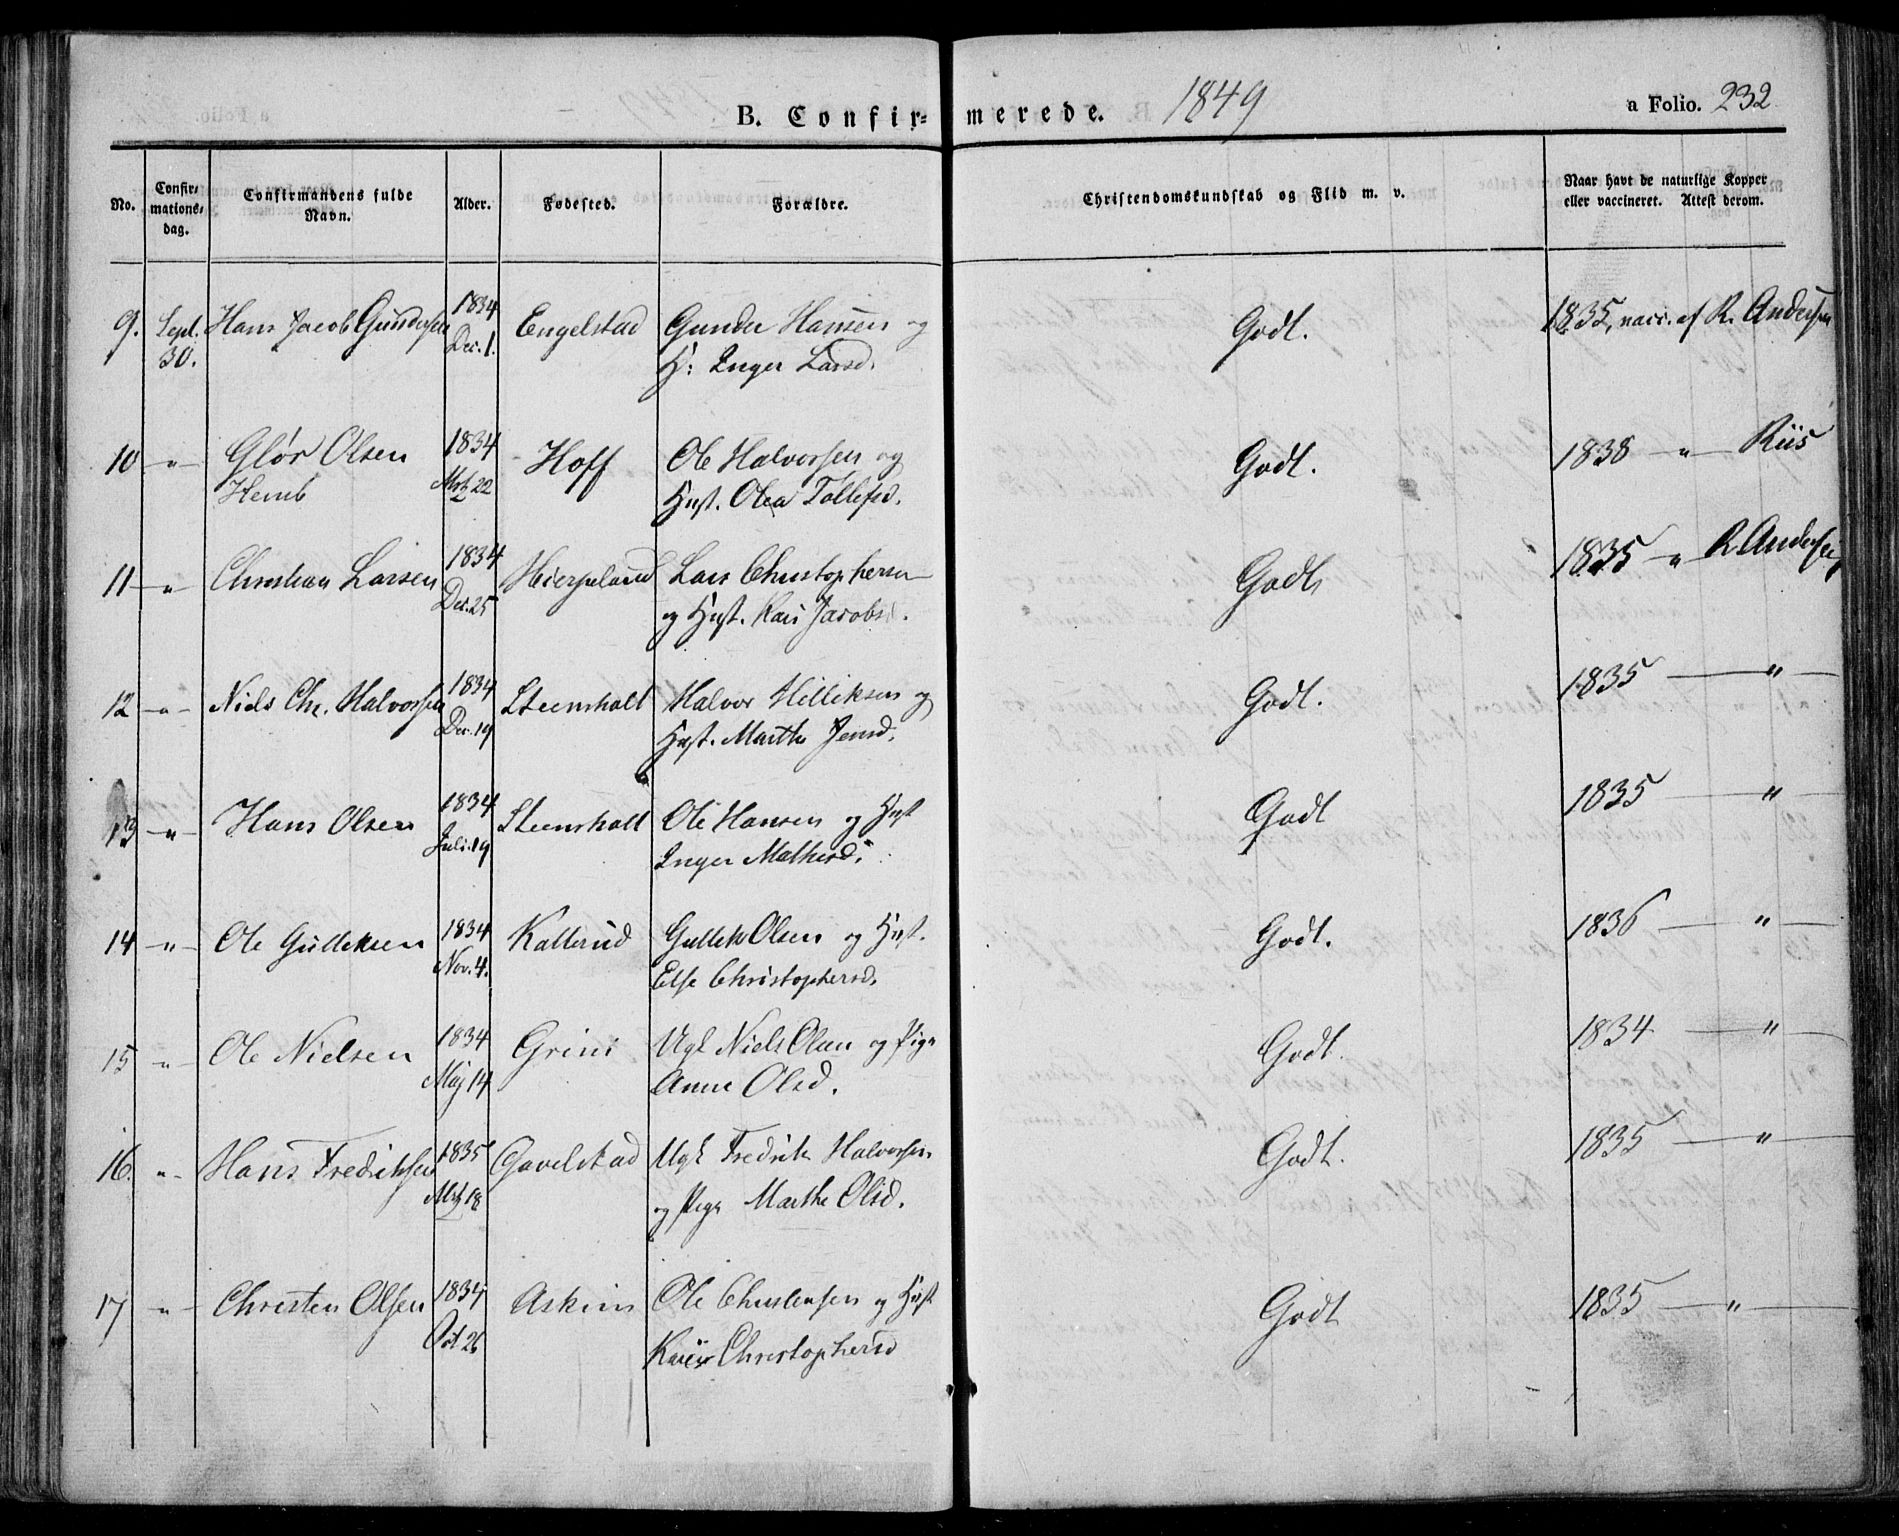 B. Confir= merede. 1849 a Folio. 232
No. Confir=mations=dag. Confirmandens fulde Navn. Alder. Fødested. Forældre. Christendomskundskab og Flid m. v. Naar havt de naturlige Kopper eller vaccineret. Attest derom.
9. Sept. Hans Jacob Gundersen 1834 Engelstad Gunder Hansen og Godt. 1835, vacc. af R. Andersen
30. Dec. 1. H: Inger Larsd.
10 " Glör Olsen 1834 Hoff Ole Halvorsen og Godt. 1838 " Riis
Hemb Mrtz 22 Hust. Olea Tollefsd.
11 " Christian Larsen 1834 Hierpeland Lars Christophersen Godt 1835 " R. Andersen
Dec. 25 og Hust. Kari Jacobsd.
12 " Niels Chr. Halvorsen 1834 Steensholt Halvor Helliksen og Godt. 1835 "
Dec. 19 Hust. Marthe Jensd.
13 " Hans Olsen 1834 Steensholt Ole Hansen og Hust Godt 1835 "
Juli. 19 Inger Mathisd.
14 " Ole Gulleksen 1834 Kallerud Gullek Olsen og Hust. Godt. 1836 "
Nov. 4. Else Christophersd.
15 " Ole Nielsen 1834 Grini Ugk Niels Olsen og Pige Godt. 1834 "
Maj 14 Anne Olsd.
16. " Hans Fredriksen 1835 Gavelstad Ugk Fredrik Halvorsen Godt. 1835 "
Mrtz 18 og Pige Marthe Olsd.
17 " Christen Olsen 1834 Askim Ole Christensen og Hust Godt 1835 "
Oct 26 Kari Christophersd